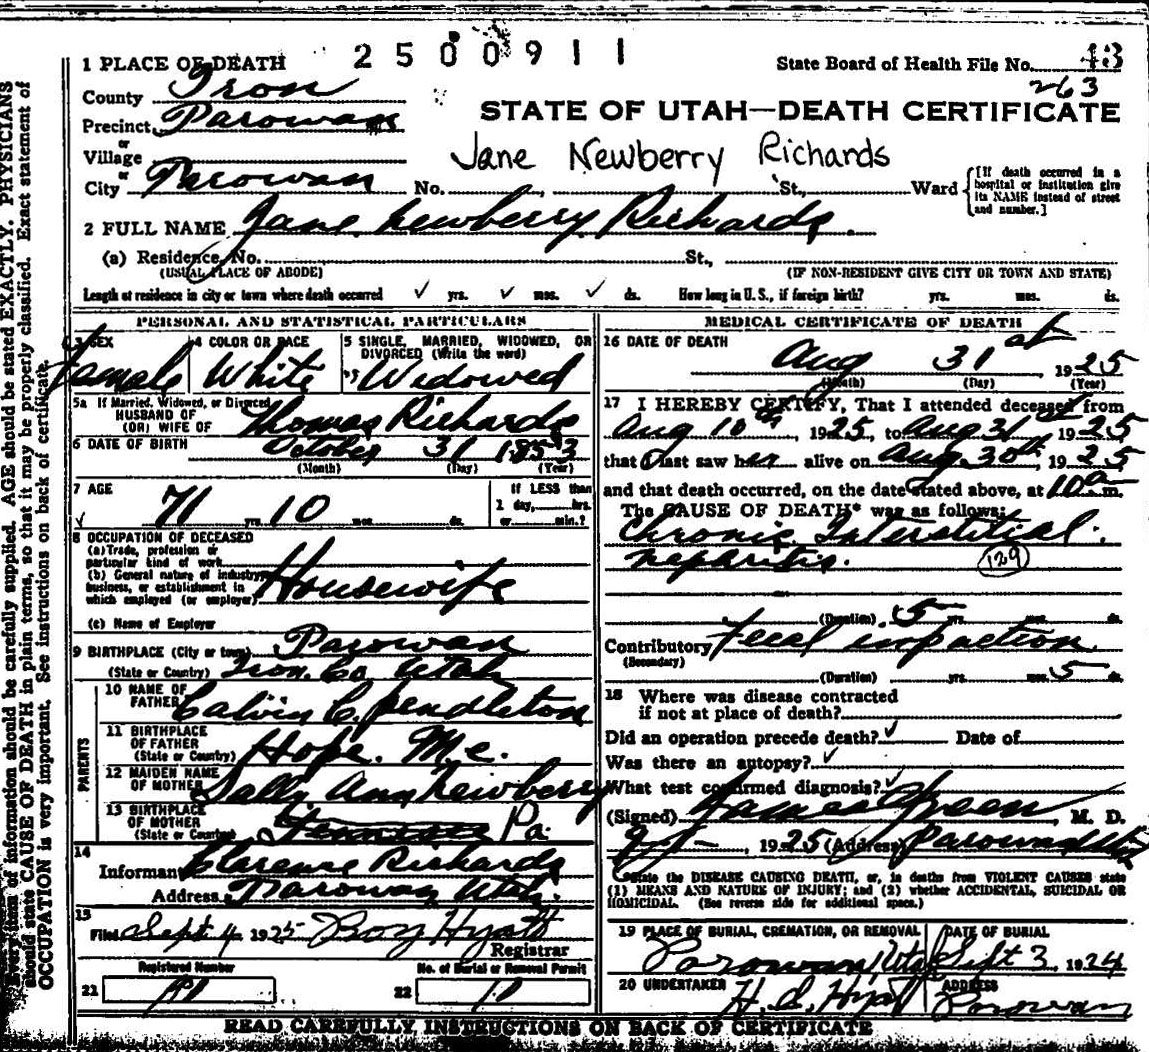 2500911
1 PLACE OF DEATH
State Board of Health File No. 43
263
County Iron
STATE OF UTAH—DEATH CERTIFICATE
Precinct Parowan
or
Village
Jane Newberry Richards
or
City Parowan No. St., Ward
[If death occurred in a hospital or institution give its NAME instead of street and number.]
2 FULL NAME Jane Newberry Richards
(a) Residence, No. St.,
(USUAL PLACE OF ABODE) (IF NON-RESIDENT GIVE CITY OR TOWN AND STATE)
Length of residence in city or town where death occurred ✓ yrs. ✓ mos. ✓ ds. How long in U. S., if foreign birth? yrs. mos. ds.
PERSONAL AND STATISTICAL PARTICULARS
3 SEX Female
4 COLOR OR RACE White
5 SINGLE, MARRIED, WIDOWED, OR DIVORCED (Write the word)
Widowed
5a If Married, Widowed, or Divorced
HUSBAND OF
(OR) WIFE OF Thomas Richards
6 DATE OF BIRTH October 31 1853
(Month) (Day) (Year)
7 AGE
71 yrs. 10 mos. ds.
If LESS than
1 day, hrs.
or min.?
8 OCCUPATION OF DECEASED
(a) Trade, profession or
particular kind of work
(b) General nature of industry,
business, or establishment in
which employed (or employer)
Housewife
(c) Name of Employer
9 BIRTHPLACE (City or town) Parowan
(State or Country) Iron Co Utah
PARENTS
10 NAME OF
FATHER Calvin C. Pendleton
11 BIRTHPLACE
OF FATHER
(State or Country) Hope. Me.
12 MAIDEN NAME
OF MOTHER Sally Ann Newberry
13 BIRTHPLACE
OF MOTHER
(State or Country) Tennessee Pa.
14
Informant Clarence Richards
Address Parowan Utah.
15
Filed Sept 4 1925 Roy Hyatt
Registrar
Registered Number
21
No. of Burial or Removal Permit
22
MEDICAL CERTIFICATE OF DEATH
16 DATE OF DEATH
Aug 31st 1925
(Month) (Day) (Year)
17 I HEREBY CERTIFY, That I attended deceased from
Aug 10th, 1925, to Aug 31st 1925
that I last saw her alive on Aug. 30th, 1925
and that death occurred, on the date stated above, at 10 a m.
The CAUSE OF DEATH* was as follows:
Chronic Interstitial
nephritis. 129
(Duration) 5 yrs. mos. ds.
Contributory Fecal impaction
(Secondary)
(Duration) yrs. mos. 5 ds.
18 Where was disease contracted
if not at place of death?
Did an operation precede death? ✓ Date of
Was there an autopsy? ✓
What test confirmed diagnosis? ✓
(Signed) James Green, M. D.
1925 (Address) Parowan Utah
*State the DISEASE CAUSING DEATH, or, in deaths from VIOLENT CAUSES state
(1) MEANS AND NATURE OF INJURY; and (2) whether ACCIDENTAL, SUICIDAL OR
HOMICIDAL. (See reverse side for additional space.)
19 PLACE OF BURIAL, CREMATION, OR REMOVAL
Parowan, Utah
DATE OF BURIAL
Sept 3 1924
20 UNDERTAKER
ADDRESS
Parowan
READ CAREFULLY INSTRUCTIONS ON BACK OF CERTIFICATE
Every item of information should be carefully supplied. AGE should be stated EXACTLY. PHYSICIANS
should state CAUSE OF DEATH in plain terms, so that it may be properly classified. Exact statement of
OCCUPATION is very important. See instructions on back of certificate.